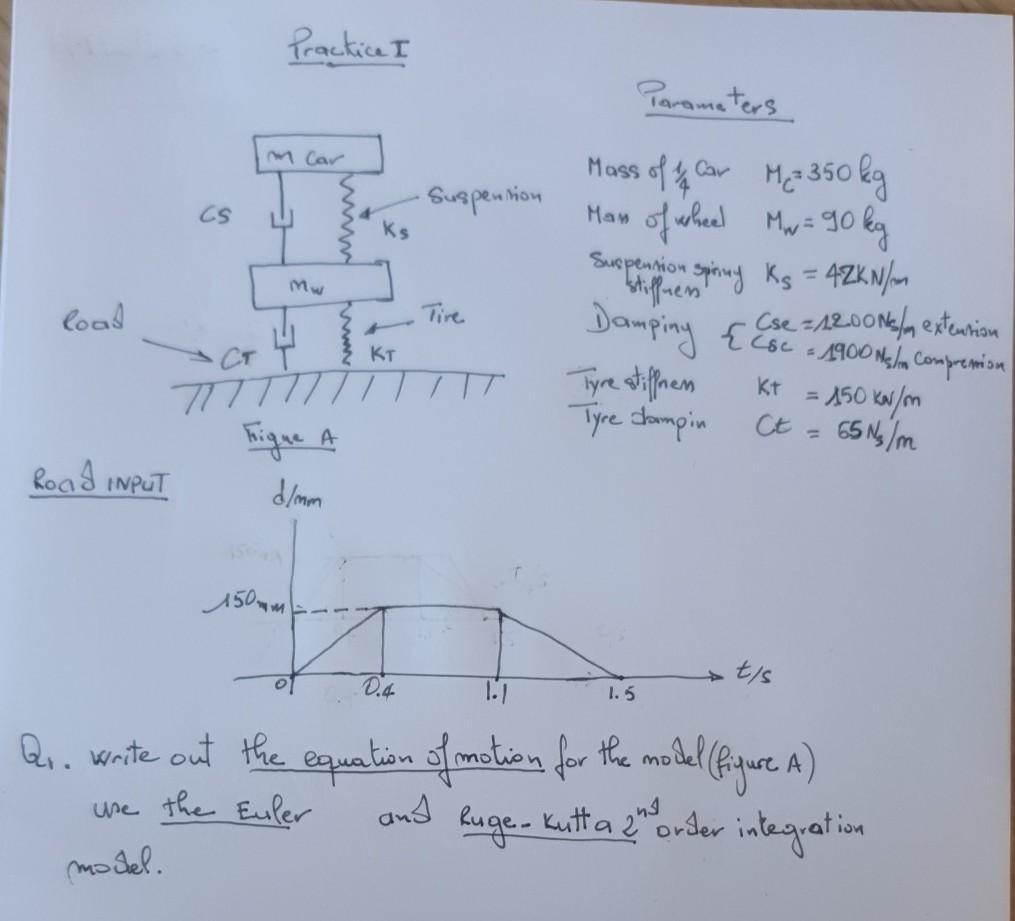 Practice I
Parameters
m Car
Suspension
CS
Ks
Mw
Road
Tire
CT
KT
Figue A
Mass of 1/4 Car Mc = 350 kg
Mass of wheel Mw = 90 kg
Suspension spring stiffness Ks = 42KN/m
Damping { Cse = 1200 Ns/m extension
Csc = 1900 Ns/m Compression
Tyre stiffness Kt = 150 KN/m
Tyre dampin Ct = 65 Ns/m
Road INPUT
d/mm
150mm
0
0.4
1.1
1.5
t/s
Q1. write out the equation of motion for the model (figure A)
use the Euler and Ruge-Kutta 2nd order integration
model.